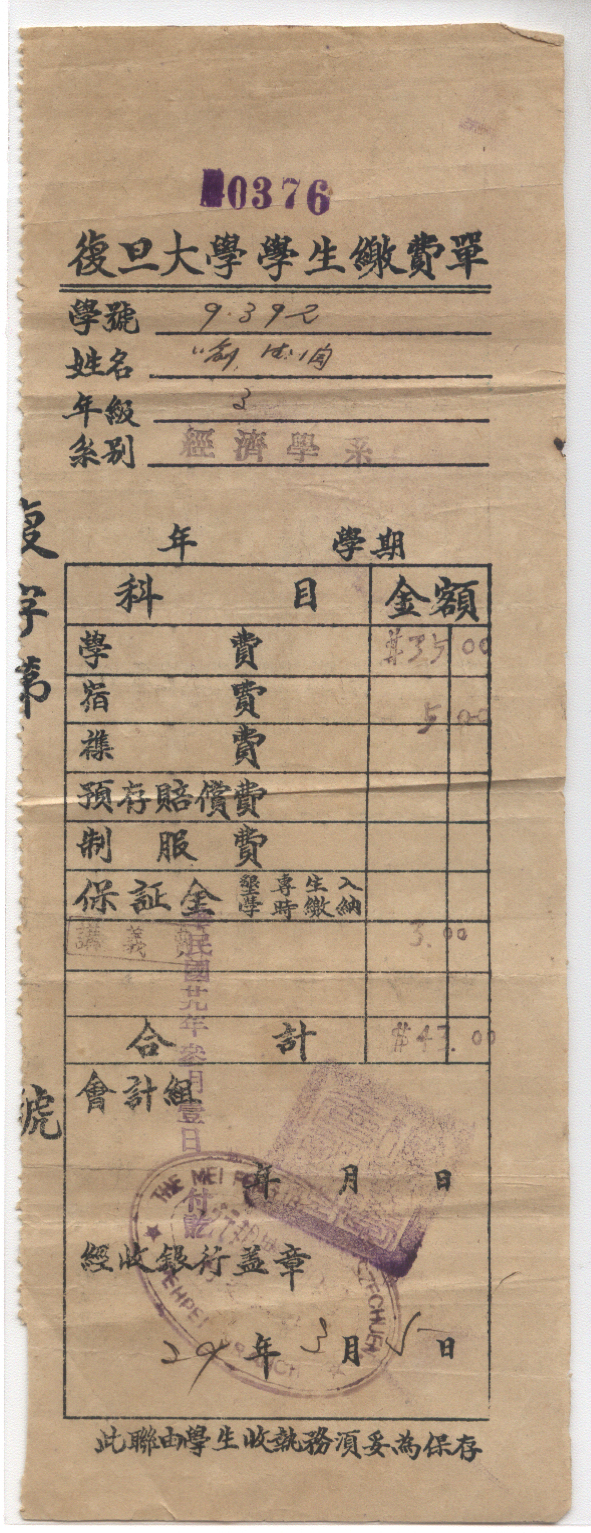 0376
復旦大學學生繳費單
學號 9392
姓名
年級 3
系別 經濟學系
年 學期
科目 金額
學費 $35.00
宿費 5.00
襍費
預存賠償費
制服費
保証金 墾專生入學時繳納
講義 3.00
合計 $43.00
復字第 號
民國廿九年叁月壹日
付訖
會計組
年 月 日
THE MEI
經收銀行盖章
PEHPEI BRANCH
29年3月5日
此聯由學生收執務須妥為保存